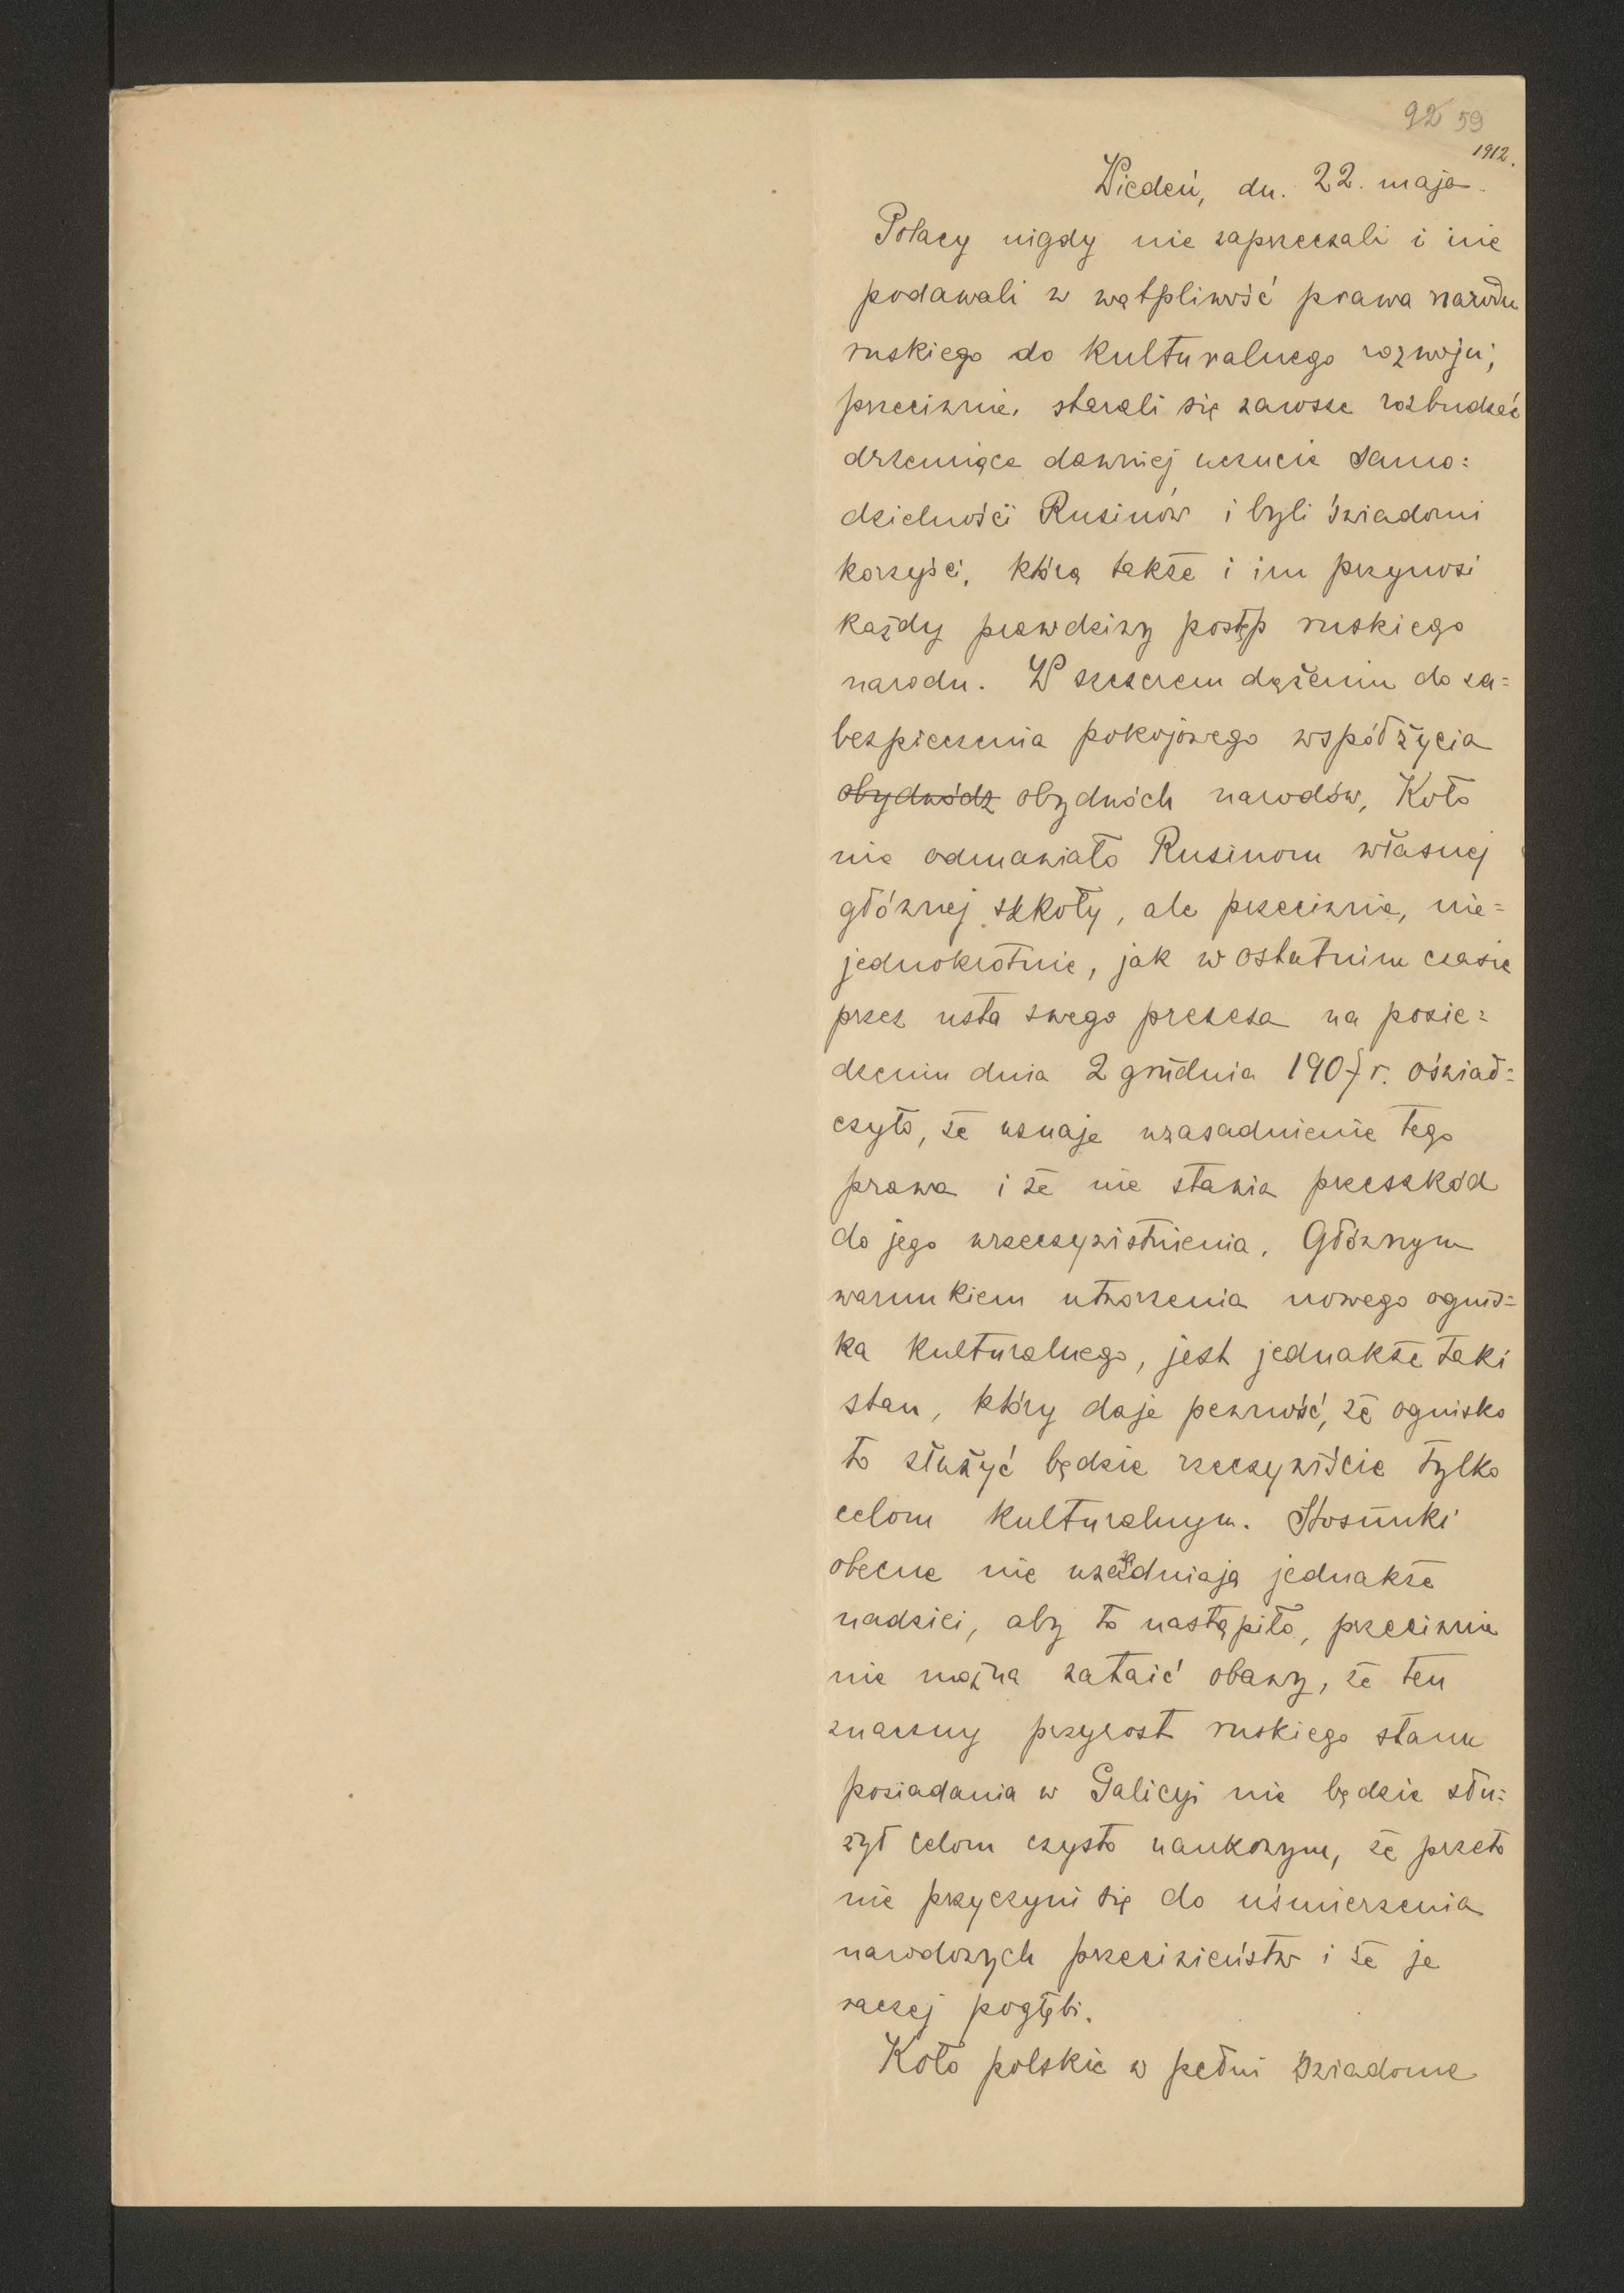 92 59
1912.
Wiedeń, dn. 22. maja.
Polacy nigdy nie zaprzeczali i nie
podawali w wątpliwość prawa narodu
ruskiego do kulturalnego rozwoju;
przeciwnie, starali się zawsze rozbudzać
drzemiące dawniej uczucie samo=
dzielności Rusinów i byli świadomi
korzyści, którą także i im przynosi
każdy prawdziwy postęp ruskiego
narodu. W szczerem dążeniu do za=
bezpieczenia pokojowego współżycia
obydwódz obydwóch narodów, Koło
nie odmawiało Rusinom własnej
głównej szkoły, ale przeciwnie, nie=
jednokrotnie, jak w ostatnim czasie
przez usta swego prezesa na posie=
dzeniu dnia 2 grudnia 1907 r. oświad=
czyło, że uznaje uzasadnienie tego
prawa i że nie stawia przeszkód
do jego urzeczywistnienia. Głównym
warunkiem utworzenia nowego ognis=
ka kulturalnego, jest jednakże taki
stan, który daje pewność, że ognisko
to służyć będzie rzeczywiście tylko
celom kulturalnym. Stosunki
obecne nie uzasadniają jednakże
nadziei, aby to nastąpiło, przeciwnie
nie można zataić obawy, że ten
znaczny przyrost ruskiego stanu
posiadania w Galicyi nie będzie słu=
żył celom czysto naukowym, że przeto
nie przyczyni się do uśmierzenia
narodowych przeciwieństw i że je
raczej pogłębi.
Koło polskie w pełni świadome